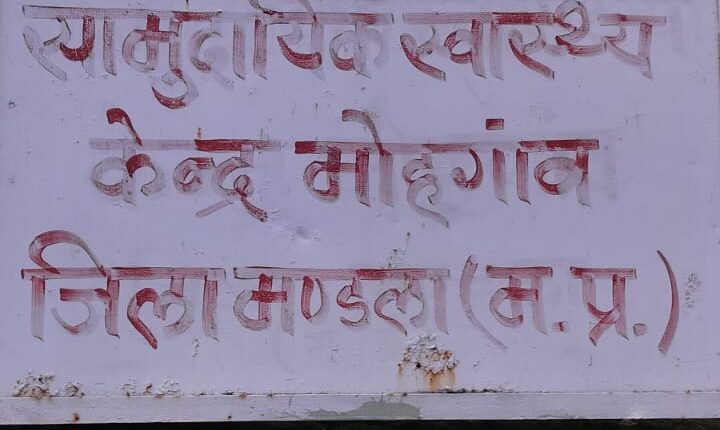 सामुदायिक स्वास्थ्य
केन्द्र मोहगांव
जिला मण्डला (म. प्र.)